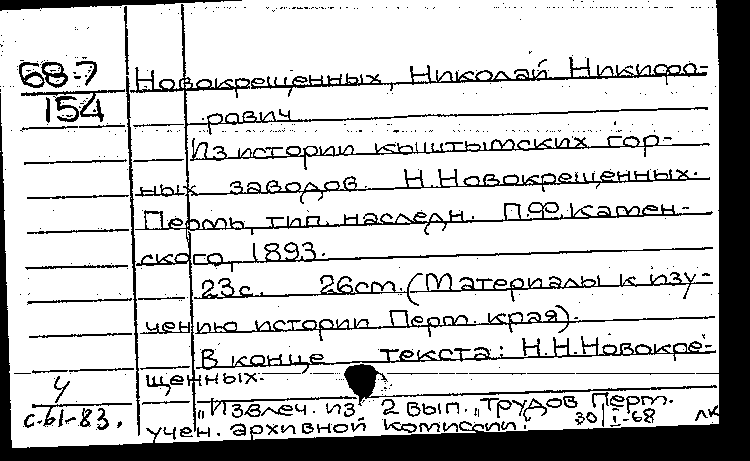 68-7
154
Новокрещенных, Николай Никифо-
рович
Из истории кыштымских гор-
ных заводов. Н.Новокрещенных.
Пермь, тип. наследн. П.Ф.Камен-
ского, 1893.
23с. 26см. (Материалы к изу-
чению истории Перм. края).
В конце текста: Н.Н.Новокре-
щенных.
"Извлеч. из 2 вып. "Трудов Перм.
учен. архивной комиссии".
У
с-61-83.
30/I-68 ЛК